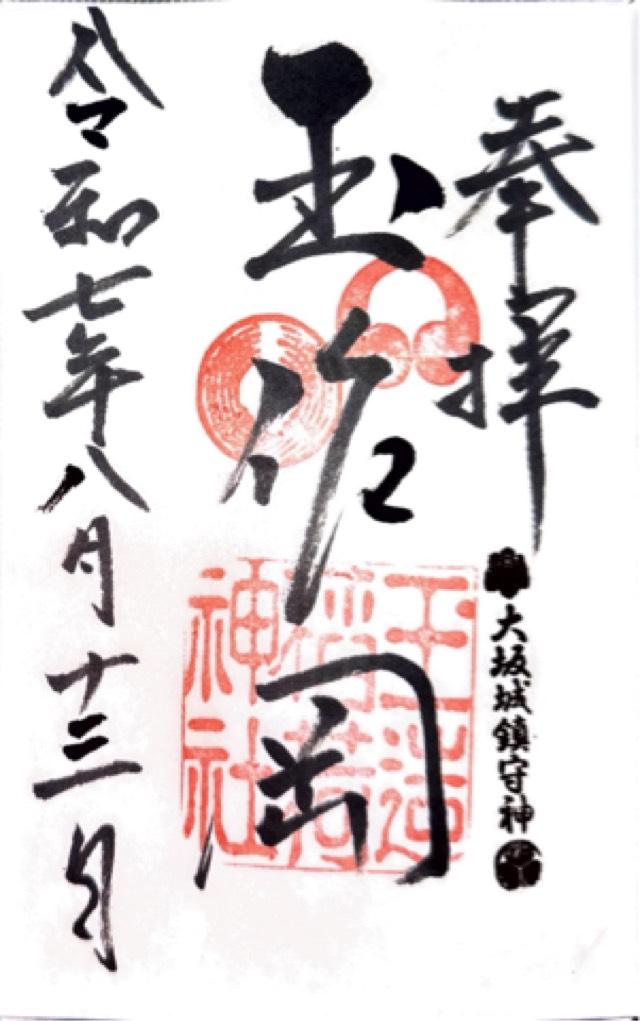 奉拝
大坂城鎮守神
玉作岡
玉造
稲荷
神社
令和七年八月十三日